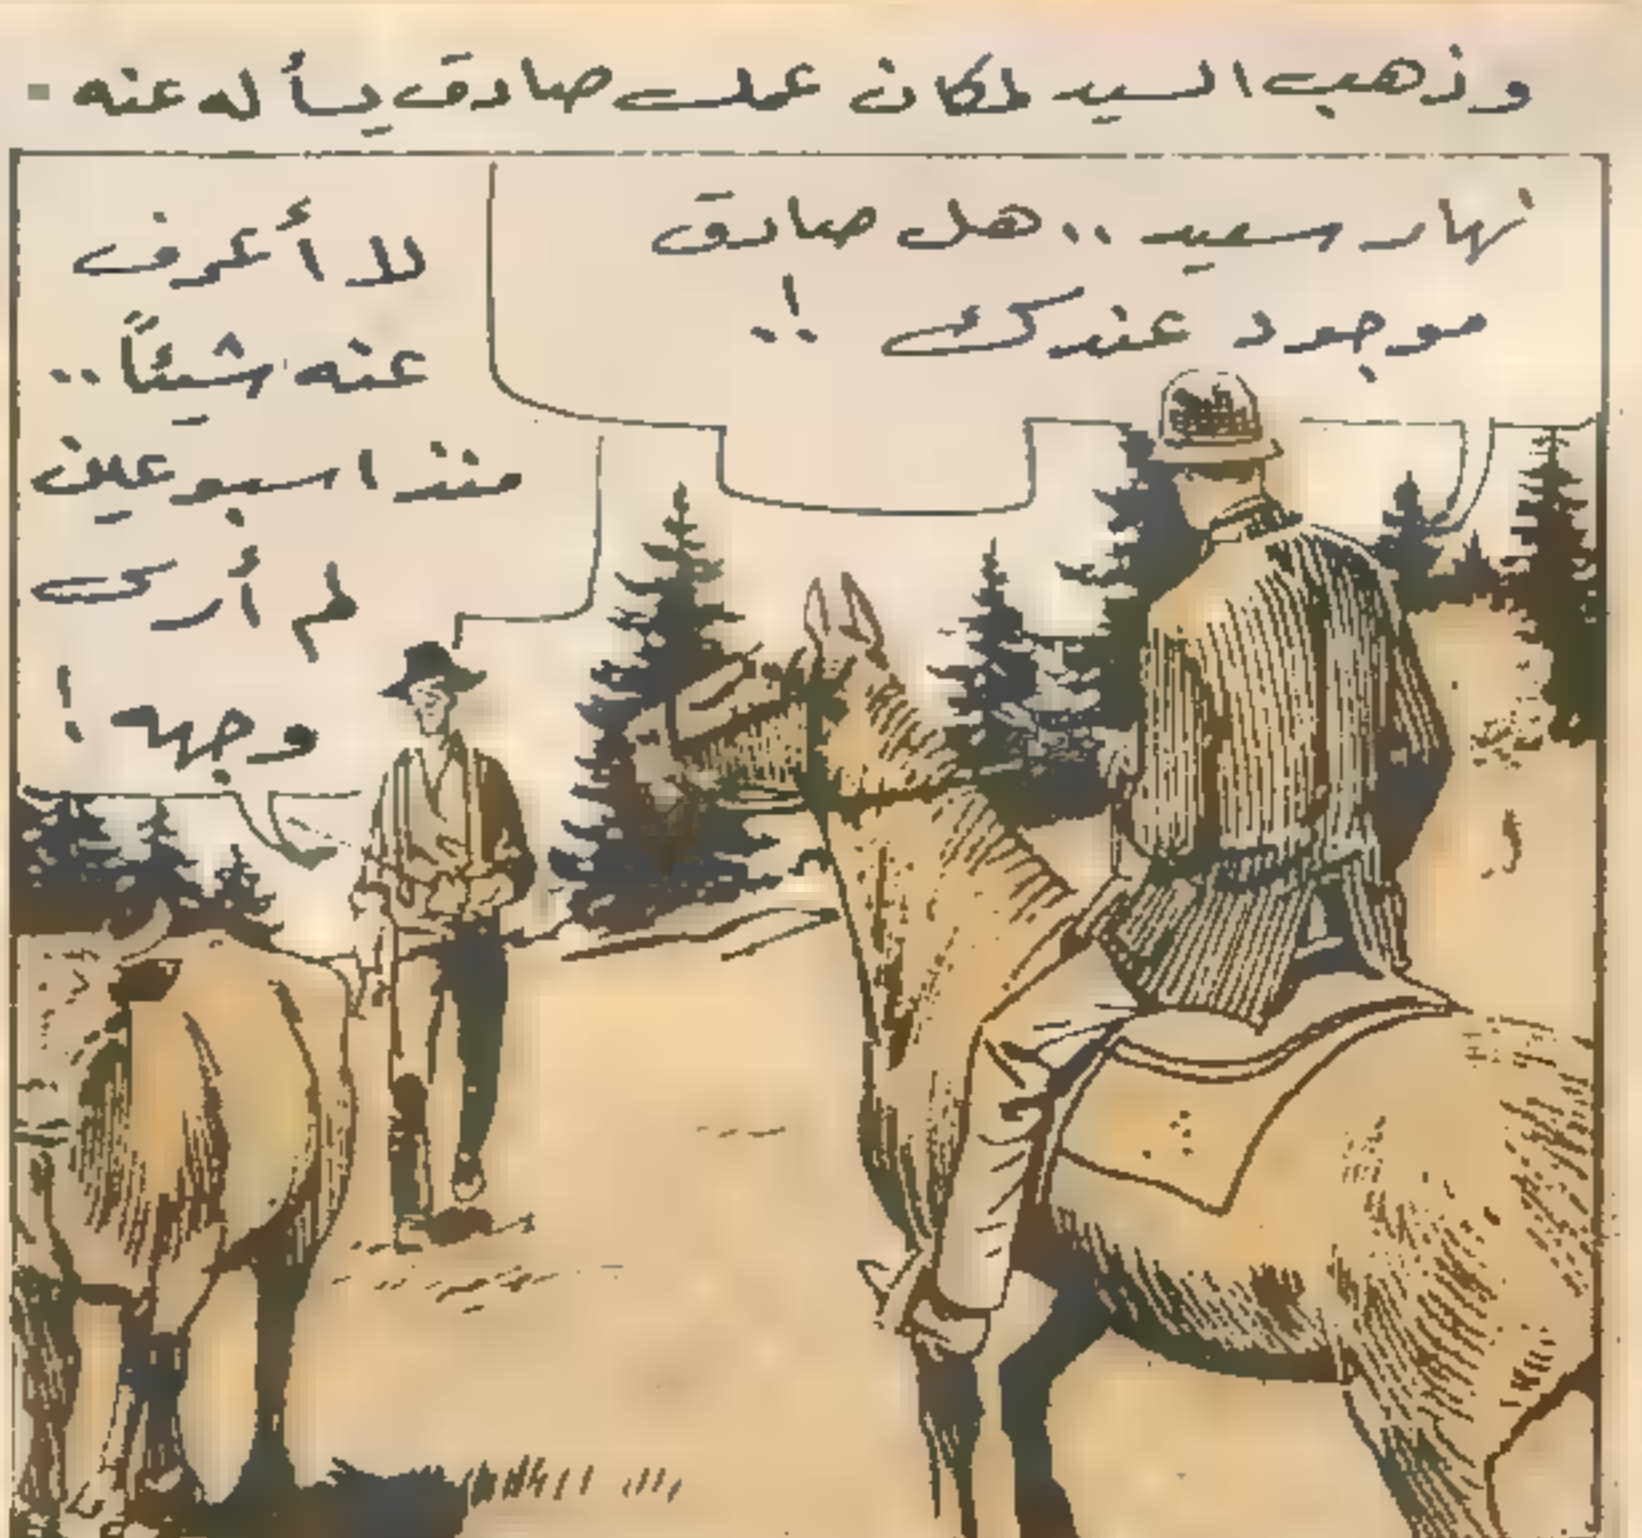 وذهب السيد لمكان عمل صادق يسأله عنه -
نهار سعيد .. هل صادق
موجود عندك !..
لا أعرف
عنه شيئاً ..
منذ اسبوعين
لم أرى
وجهه !